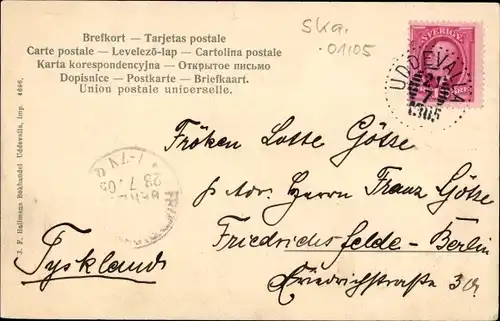 Brefkort — Tarjetas postale
Carte postale — Levelező-lap — Cartolina postale
Karta korespondencyjna — Открытое письмо
Dopisnice — Postkarte — Briefkaart.
Union postale universelle.
Ska.
01105
SVERIGE
UDDEVALLA
21
7
1905
J. F. Hallmans Bokhandel Uddevalla, imp. 4696.
Fröken Lotte Götze
p. Adr. Herrn Franz Götze
Friedrichsfelde-Berlin
Friedrichstraße
Tyskland
23.7.05
7-8V